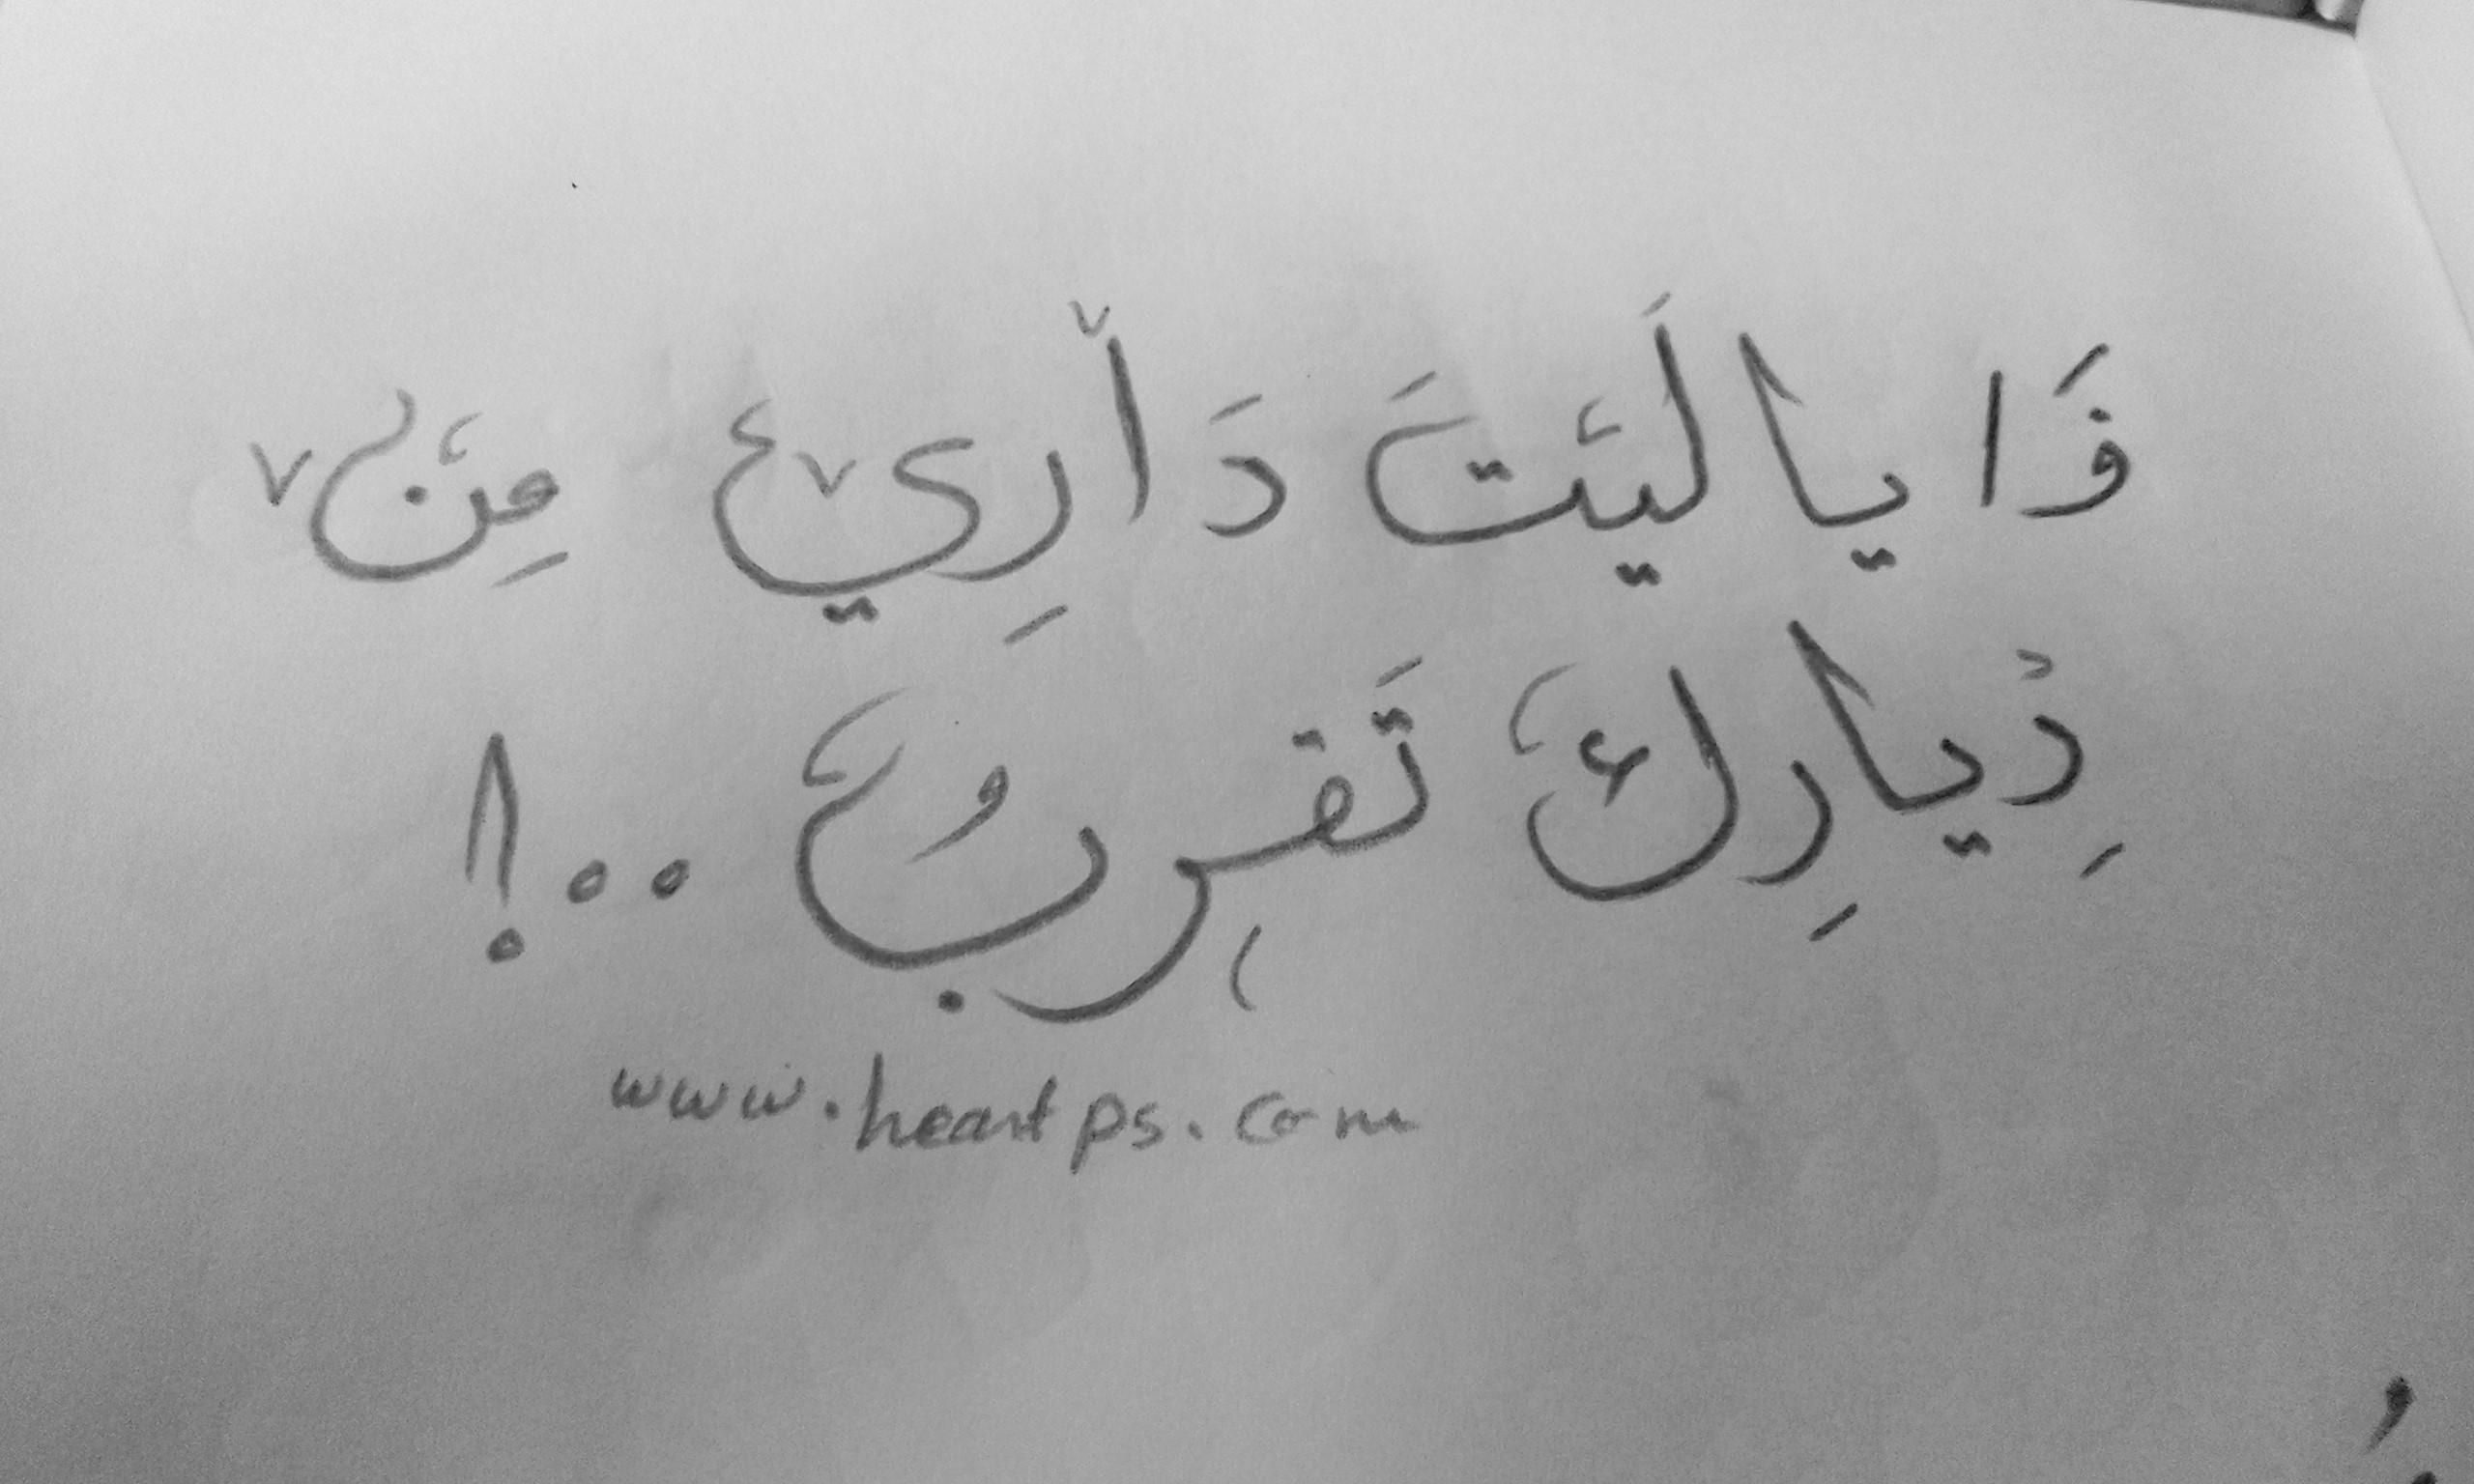 فَا يا لَيتَ دَاري مِن
دِيارِك تَقربُ ..!
www.heartps.com